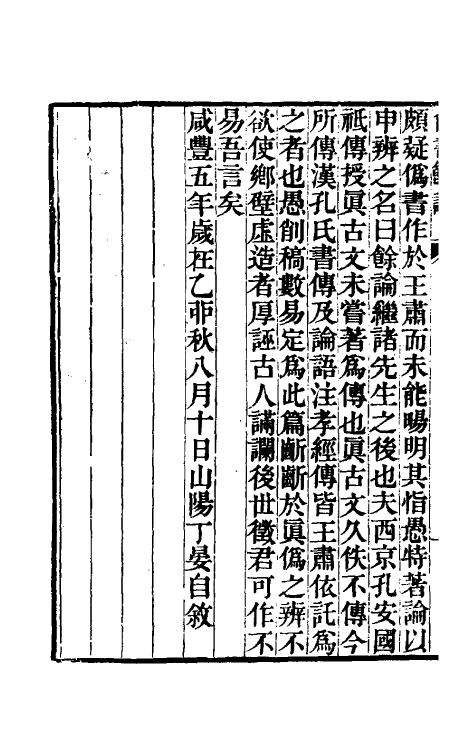 頗疑僞書作於王肅而未能暢明其恉愚特著論以
申辨之名曰餘論繼諸先生之後也夫西京孔安國
祗傳授眞古文未嘗著爲傳也眞古文久佚不傳今
所傳漢孔氏書傳及論語注孝經傳皆王肅依託爲
之者也愚削稿數易定爲此篇齗齗於眞僞之辨不
欲使鄉壁虛造者厚誣古人讕讕後世徵君可作不
易吾言矣
咸豐五年歲在乙丣秋八月十日山陽丁晏自敘